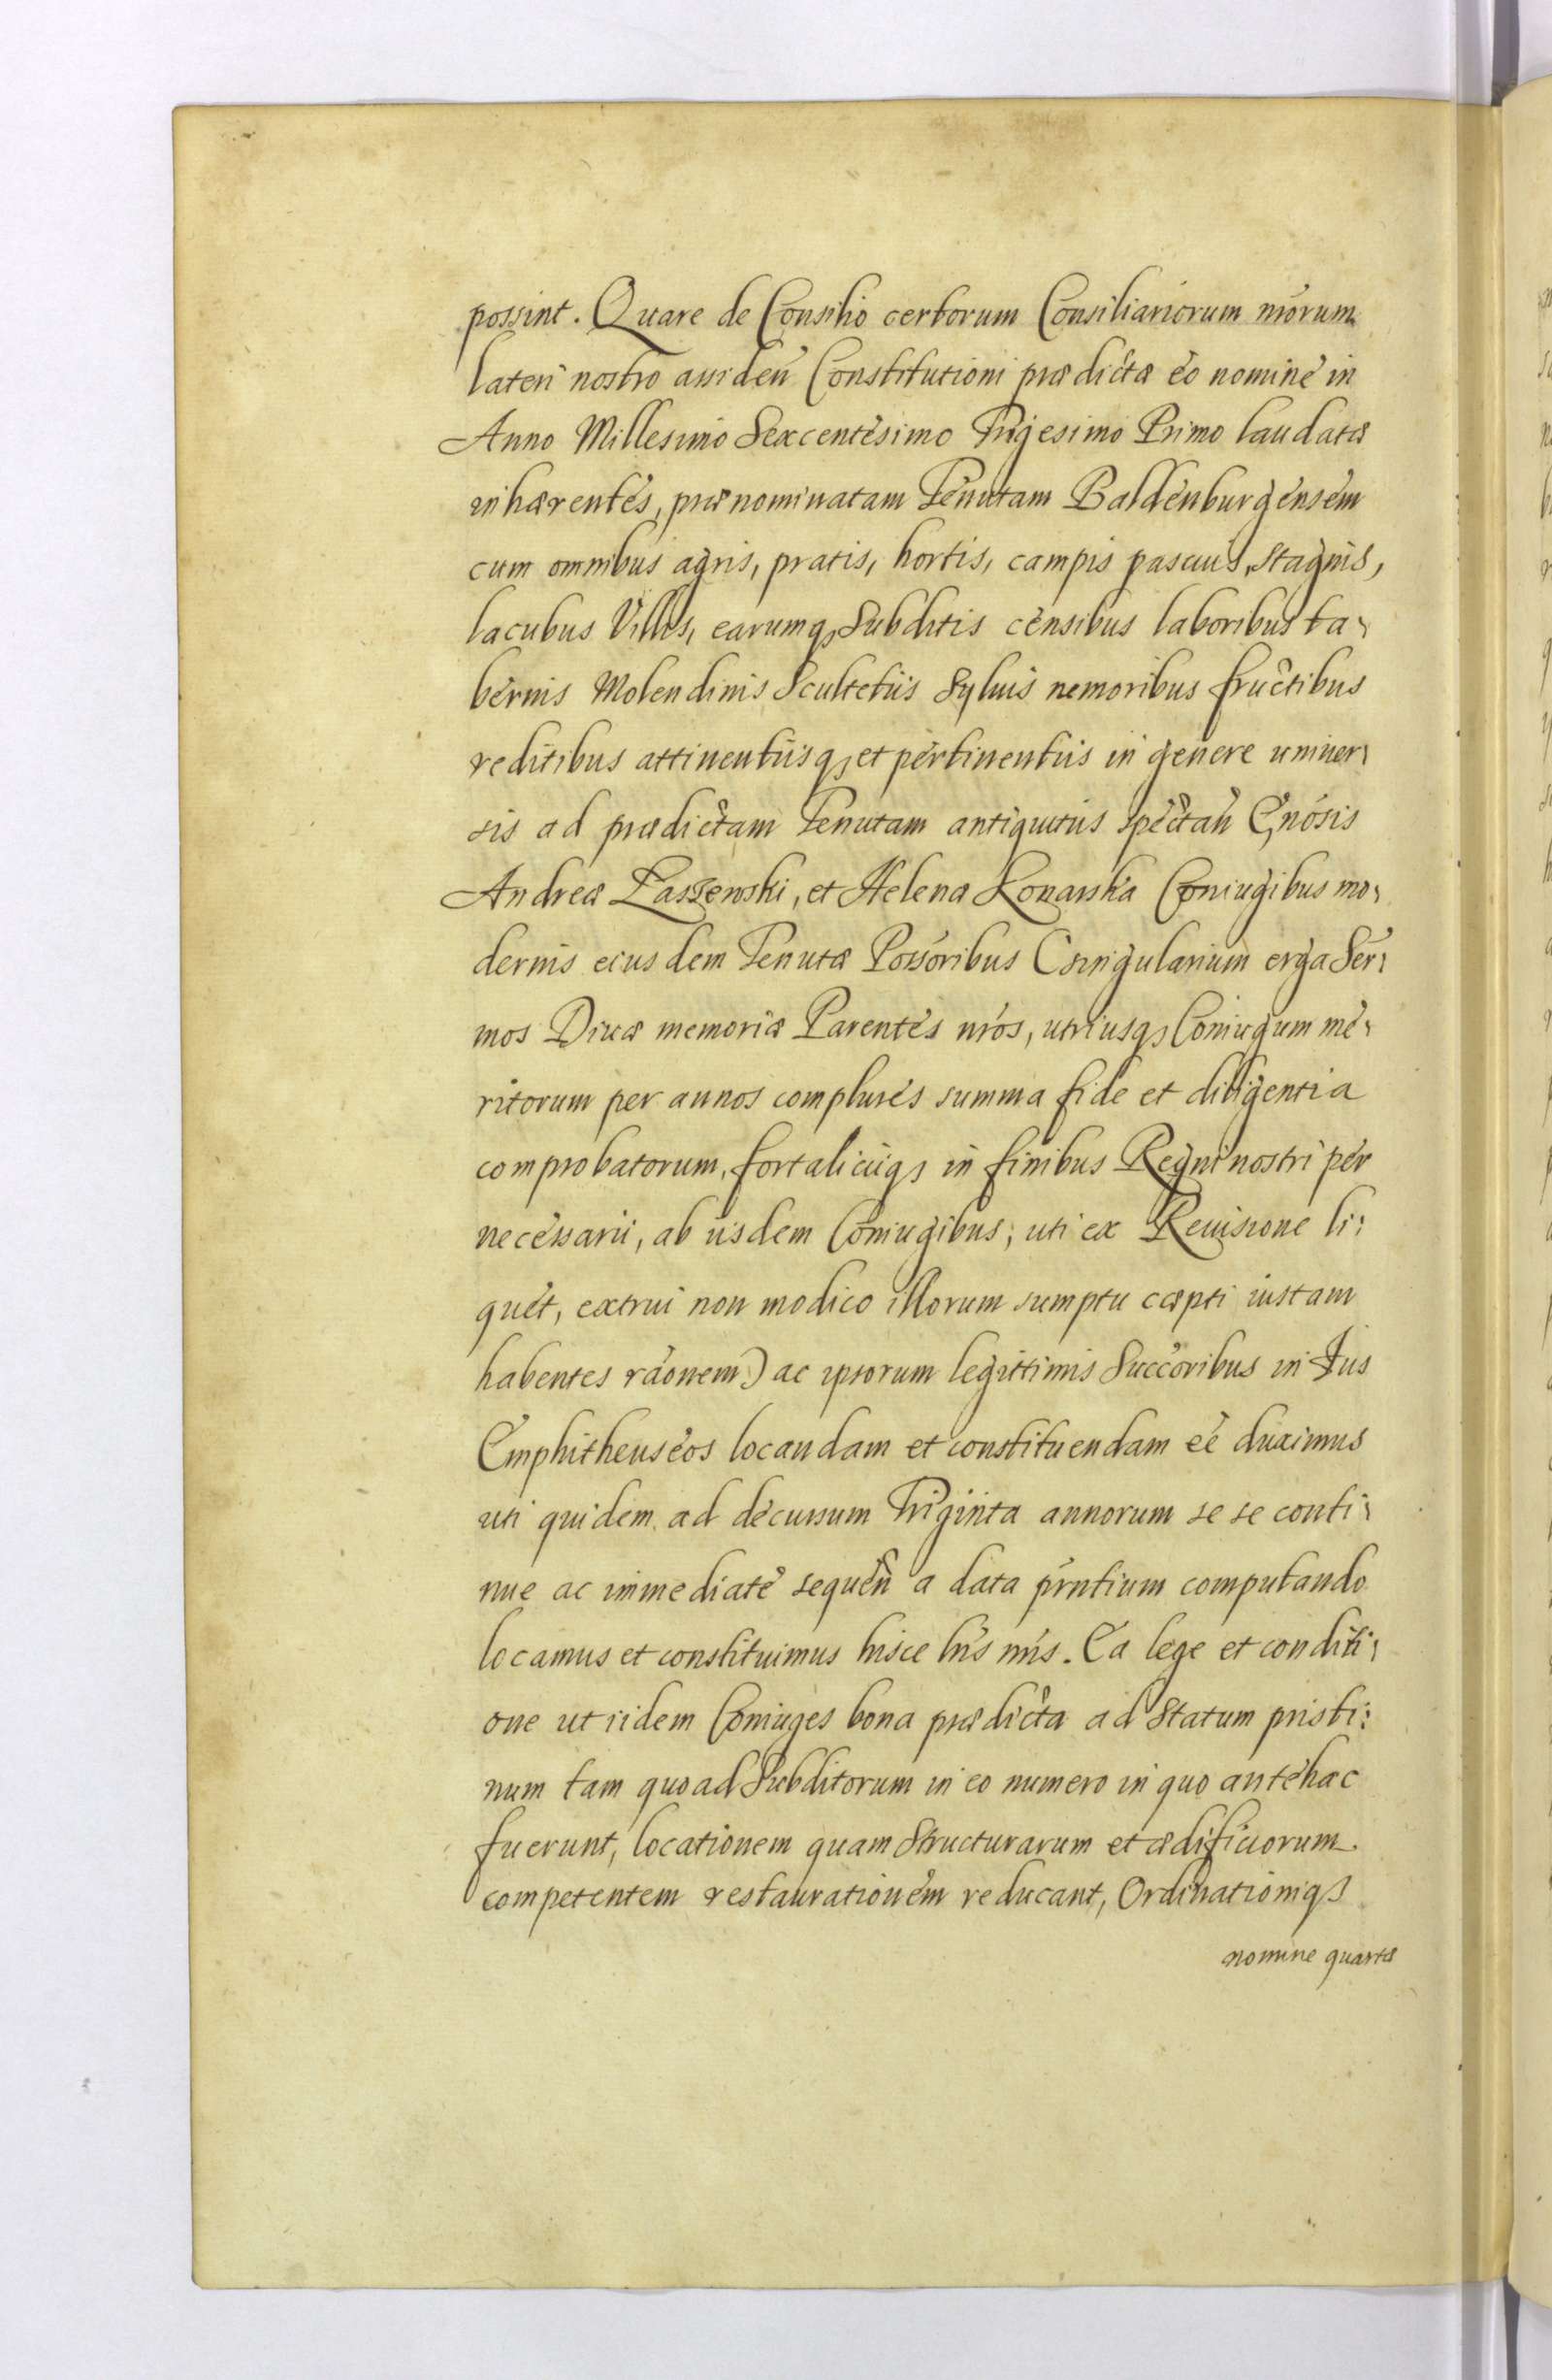 possint. Quare de Consilio certorum Consiliariorum nr̃orum
lateri nostro assideñ Constitutioni prædictæ eo nomine in
Anno Millesimo Sexcentesimo Trigesimo Primo laudatæ
inhærentes, prænominatam Tenutam Baldenburgensem
cum omnibus agris, pratis, hortis, campis pascuis, stagnis,
lacubus Villis, earumq₃ Subditis censibus laboribus ta,
bernis Molendinis Scultetiis Syluis nemoribus fructibus
reditibus attinentiisq₃ et pertinentiis in genere uniuer,
sis ad prædictam Tenutam antiquitus spectañ Gñosis
Andreæ Laszewski, et Helenæ Konarska Coniugibus mo,
dernis eiusdem Tenutæ Possoribus (singularium erga Ser:
mos Diuæ memoriæ Parentes nr̃os, utriusq₃ Coniugum me,
ritorum per annos complures summa fide et diligentia
comprobatorum, fortaliciiq₃ in finibus Regni nostri per
necessarii, ab iisdem Coniugibus, uti ex Reuisione li:
quet, extrui non modico illorum sumptu cæpti iustam
habentes rãonem) ac ipsorum legittimis Succoribus in Jus
Emphitheuseos locandam et constituendam eẽ duximus
uti quidem ad decursum Triginta annorum se se conti,
nue ac immediate sequeñ a data pr̃ntium computando
locamus et constituimus hisce lr̃is nr̃is. Ea lege et conditi,
one ut iidem Coniuges bona prædicta ad Statum pristi:
num tam quoad Subditorum in eo numero in quo antehac
fuerunt, locationem quam Structurarum et ædificiorum
competentem restaurationem reducant, Ordinationiq₃
nomine quartæ